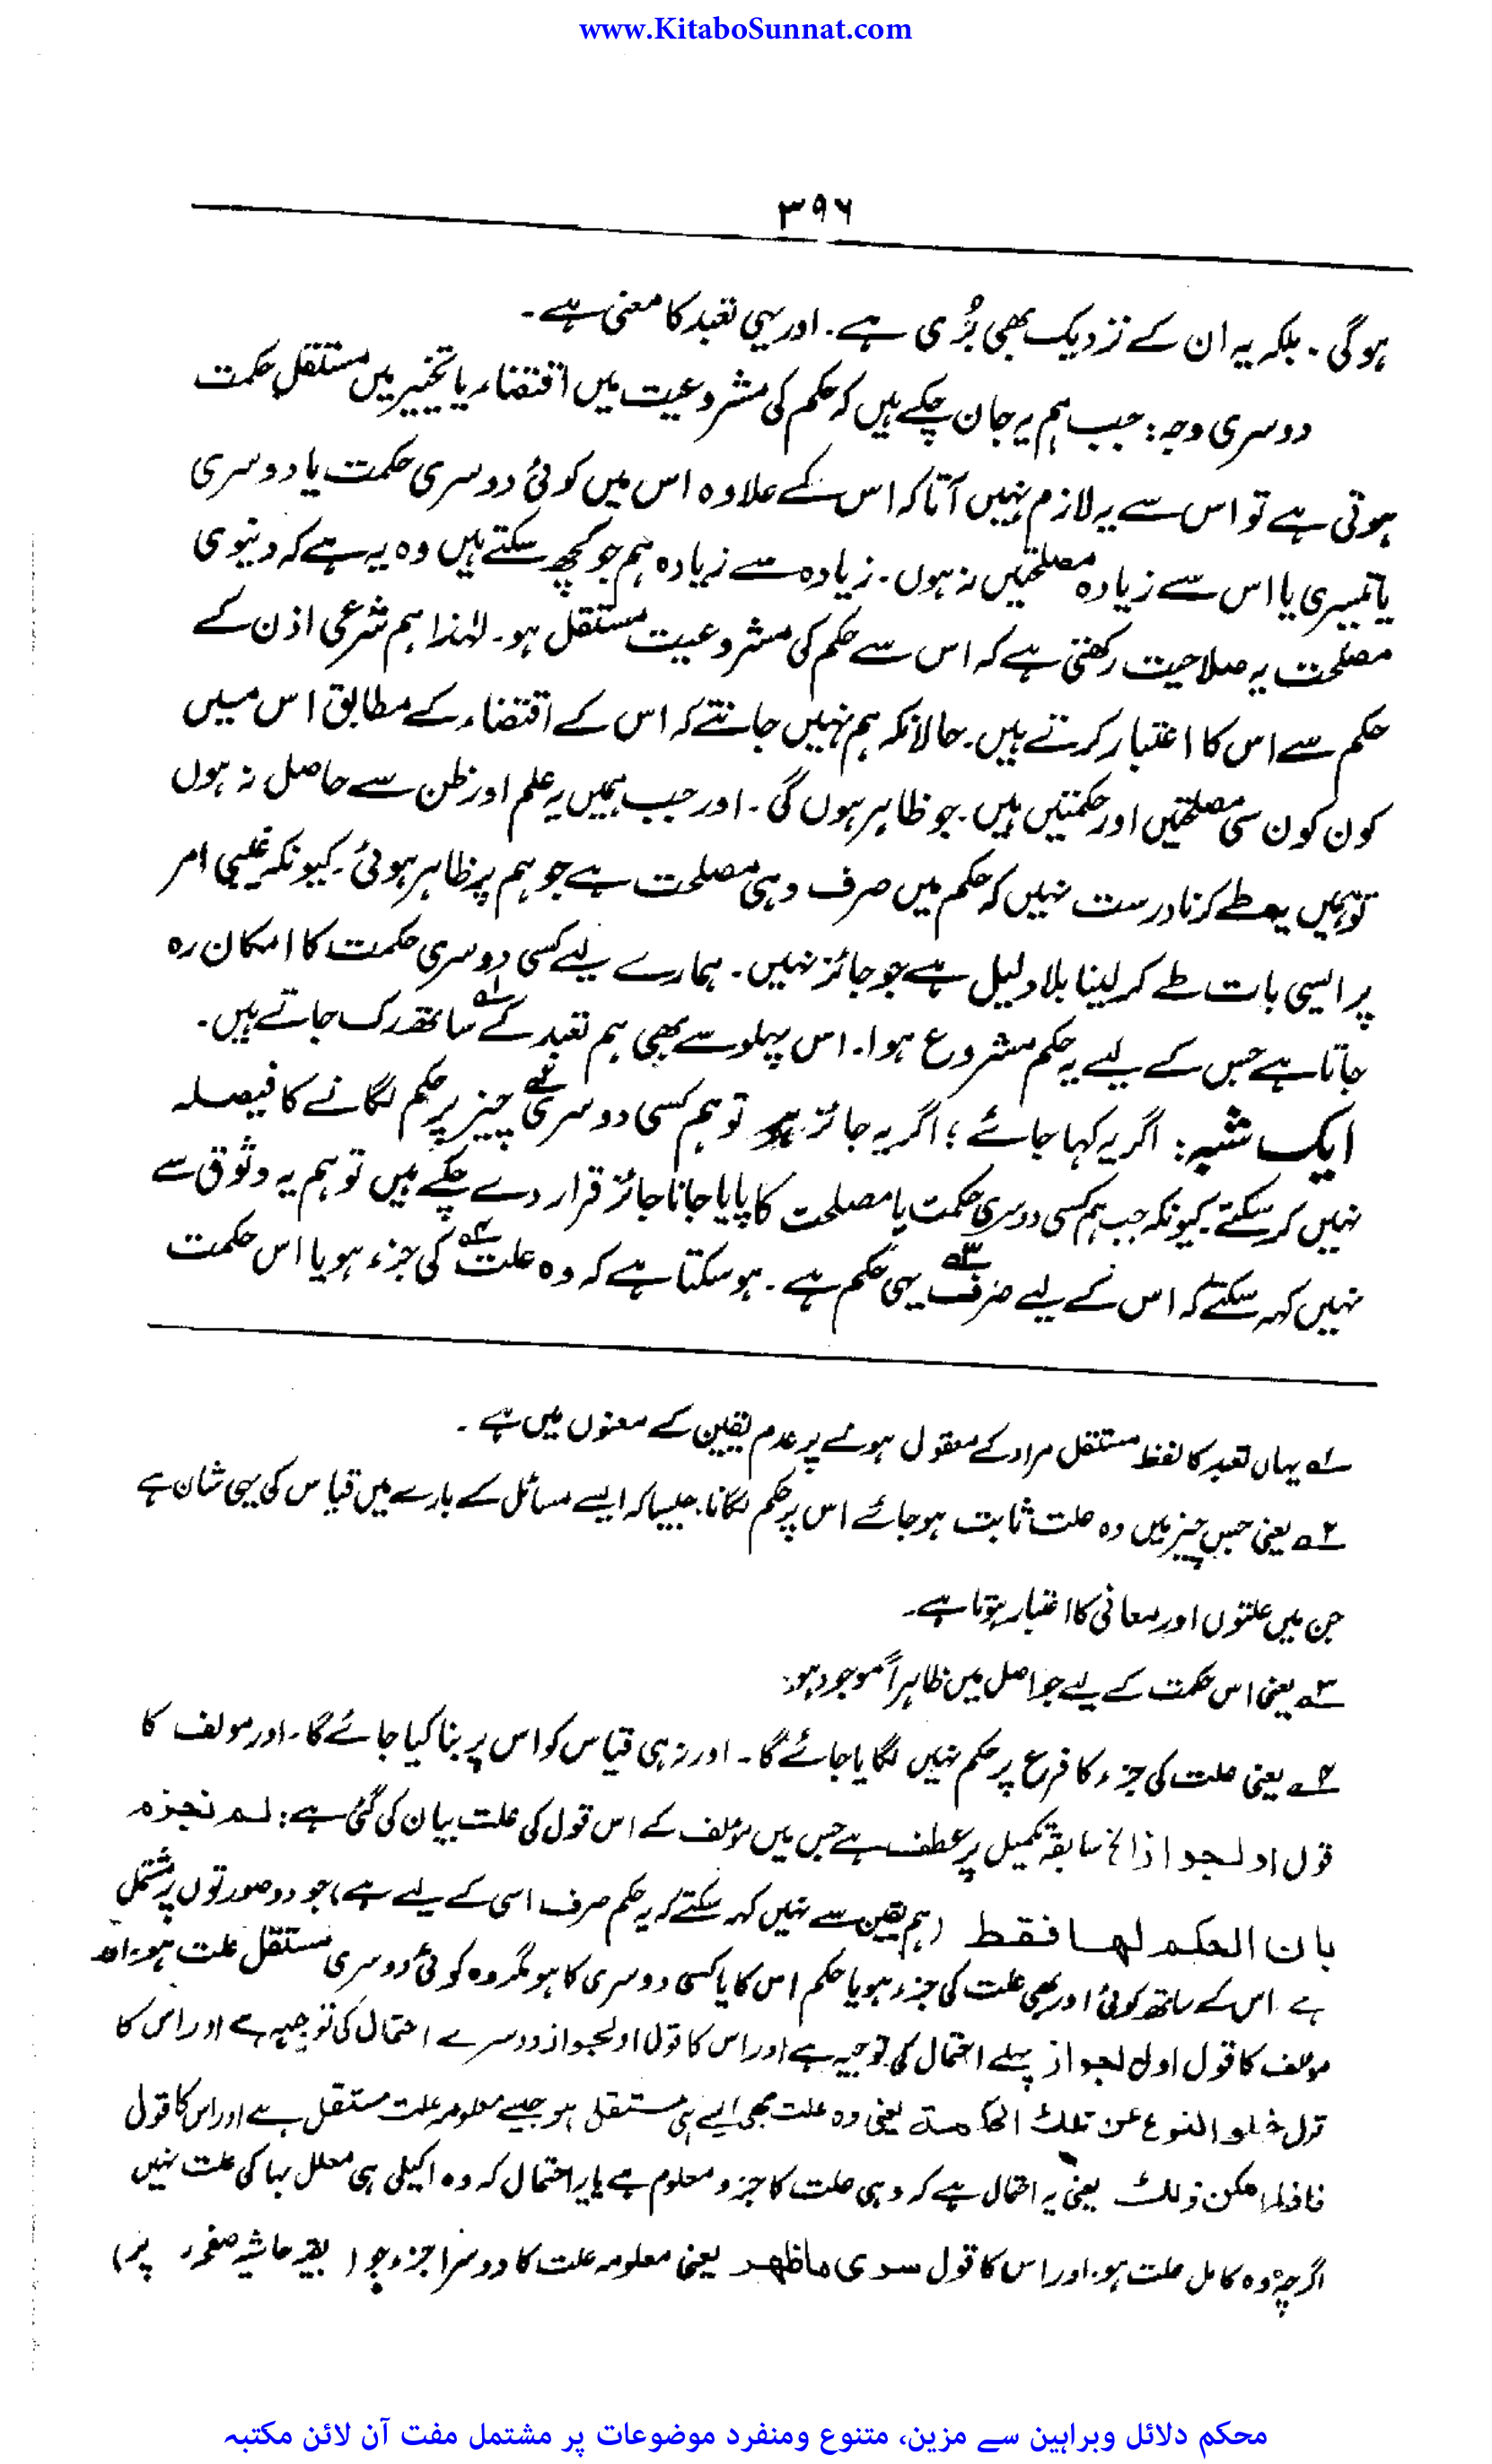 www.KitaboSunnat.com
۳۹۶
ہوگی۔ بلکہ یہ ان کے نزدیک بھی بُری ہے۔ اور یہی تعبد کا معنی ہے۔
دوسری وجہ: جب ہم یہ جان چکے ہیں کہ حکم کی مشروعیت میں اقتضاء یا تخییر میں مستقل حکمت
ہوتی ہے تو اس سے یہ لازم نہیں آتا کہ اس کے علاوہ اس میں کوئی دوسری حکمت یا دوسری
یا تیسری یا اس سے زیادہ مصلحتیں نہ ہوں۔ زیادہ سے زیادہ ہم جو کچھ سکتے ہیں وہ یہ ہے کہ دنیوی
مصلحت یہ صلاحیت رکھتی ہے کہ اس سے حکم کی مشروعیت مستقل ہو۔ لہٰذا ہم شرعی اذن کے
حکم سے اس کا اعتبار کرتے ہیں۔ حالانکہ ہم نہیں جانتے کہ اس کے اقتضاء کے مطابق اس میں
کون کون سی مصلحتیں اور حکمتیں ہیں۔ جو ظاہر ہوں گی۔ اور جب ہمیں یہ علم اور ظن سے حاصل نہ ہوں
تو ہمیں یہ طے کرنا درست نہیں کہ حکم میں صرف وہی مصلحت ہے جو ہم پر ظاہر ہوئی۔ کیونکہ غیبی امر
پر ایسی بات طے کر لینا بلا دلیل ہے جو جائز نہیں۔ ہمارے لیے کسی دوسری حکمت کا امکان رہ
جاتا ہے جس کے لیے یہ حکم مشروع ہوا۔ اس پہلو سے بھی ہم تعبد کے ؎۱ ساتھ رک جاتے ہیں۔
ایک شبہ: اگر یہ کہا جائے؛ اگر یہ جائز ہو تو ہم کسی دوسری ؎۲ چیز پر حکم لگانے کا فیصلہ
نہیں کر سکتے۔ کیونکہ جب ہم کسی دوسری حکمت یا مصلحت کا پایا جانا جائز قرار دے چکے ہیں تو ہم یہ وثوق سے
نہیں کہہ سکتے کہ اس کے لیے صرف ؎۳ یہی حکم ہے۔ ہو سکتا ہے کہ وہ علت ؎۴ کی جزء ہو یا اس حکمت
؎۱ یہاں تعبد کا لفظ مستقل مراد کے معقول ہونے پر عدم یقین کے معنوں میں ہے۔
؎۲ یعنی جس چیز میں وہ علت ثابت ہو جائے اس پر حکم لگانا، جیسا کہ ایسے مسائل کے بارے میں قیاس کی یہی شان ہے
جن میں علتوں اور معانی کا اعتبار ہوتا ہے۔
؎۳ یعنی اس حکمت کے لیے جو اصل میں ظاہراً موجود ہو۔
؎۴ یعنی علت کی جزء کا فرع پر حکم نہیں لگایا جائے گا۔ اور نہ ہی قیاس کو اس پر بنا کیا جائے گا۔ اور مولف کا
قول اولجواز الخ سابقہ تکمیل پر عطف ہے جس میں مولف کے اس قول کی علت بیان کی گئی ہے: لم نجزم
بان الحکم لھا فقط (ہم یقین سے نہیں کہہ سکتے کہ یہ حکم صرف اسی کے لیے ہے) جو دو صورتوں پر مشتمل
ہے اس کے ساتھ کوئی اور بھی علت کی جزء ہو یا حکم اس کا یا کسی دوسری کا ہو مگر وہ کوئی دوسری مستقل علت ہو۔ اور
مولف کا قول اول لجواز پہلے احتمال کی توجیہ ہے اور اس کا قول اولجواز دوسرے احتمال کی توجیہ ہے اور اس کا
قول خلو النوع عن تلك الحکمة یعنی وہ علت بھی ایسے ہی مستقل ہو جیسے معلومہ علت مستقل ہے اور اس کا قول
فاذا امکن ذلك یعنی یہ احتمال ہے کہ وہی علت کا جزو معلوم ہے یا یہ احتمال کہ وہ اکیلی ہی معلل بہا کی علت نہیں
اگرچہ وہ کامل علت ہو۔ اور اس کا قول سوی ما ظهر یعنی معلومہ علت کا دوسرا جزء جو (بقیہ حاشیہ صفحہ پر)
محکم دلائل وبراہین سے مزین، متنوع ومنفرد موضوعات پر مشتمل مفت آن لائن مکتبہ